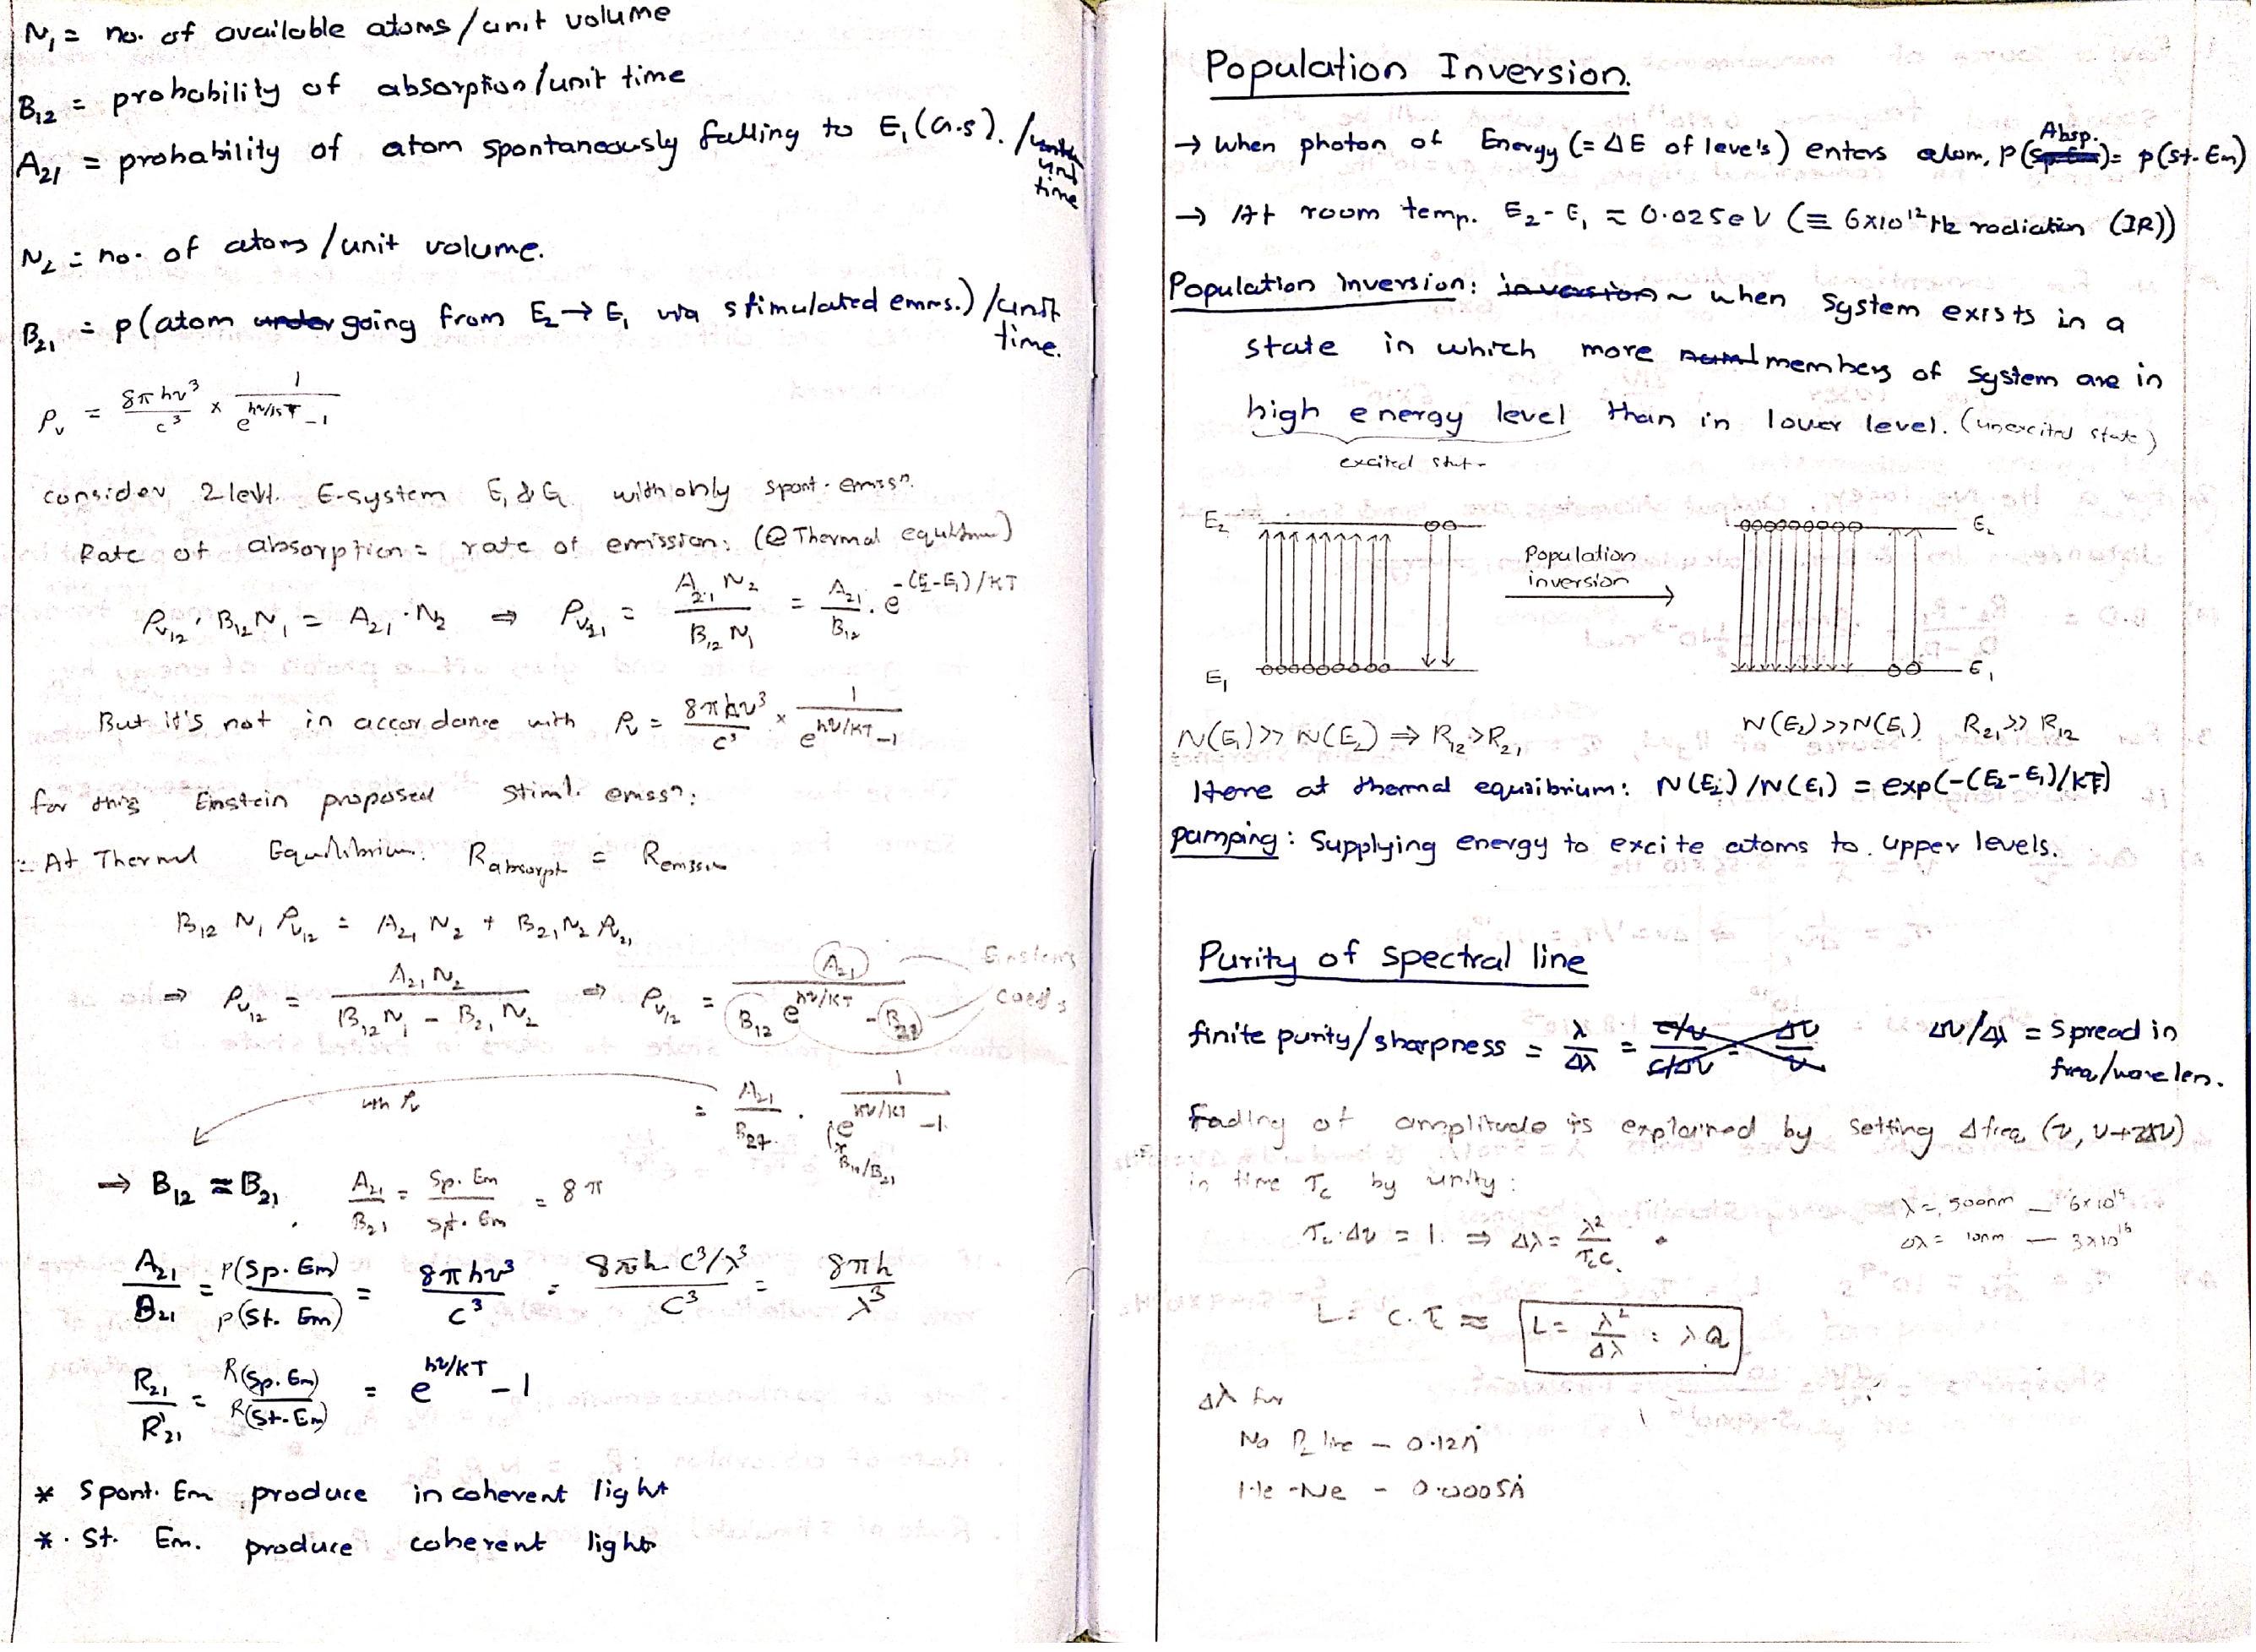 N₁ = no. of available atoms / unit volume
B₁₂ = probability of absorption / unit time
A₂₁ = probability of atom spontaneously falling to E₁ (G.S). / unit time
N₂ = no. of atoms / unit volume.
B₂₁ = p(atom going from E₂ → E₁ via stimulated emms.) / unit time.
ρᵥ = 8πhν³/c³ × 1/(e^(hν/kT) - 1)
consider 2 levl. E-system E₁ & E₂ with only spont. emissⁿ.
Rate of absorption = rate of emission: (@ Thermal equlbm)
ρᵥ₁₂ · B₁₂ N₁ = A₂₁ · N₂ ⇒ ρᵥ₂₁ = A₂₁ N₂ / B₁₂ N₁ = A₂₁/B₁₂ . e^(-(E₂-E₁)/KT)
But it's not in accordance with ρᵥ = 8πhν³/c³ × 1/(e^(hν/KT) - 1)
for this Einstein proposed stiml. emssⁿ:
∴ At Thermal Equilibrium: R absorpt = R emission
B₁₂ N₁ ρᵥ₁₂ = A₂₁ N₂ + B₂₁ N₂ ρᵥ₂₁
⇒ ρᵥ₁₂ = A₂₁ N₂ / (B₁₂ N₁ - B₂₁ N₂) ⇒ ρᵥ₁₂ = A₂₁ / (B₁₂ e^(hν/KT) - B₂₁) Einsteins coeffs
with ρᵥ = A₂₁/B₂₁ . 1/(e^(hν/KT) × B₁₂/B₂₁ - 1)
⇒ B₁₂ ≈ B₂₁. A₂₁/B₂₁ = Sp. Em / St. Em = 8π
A₂₁/B₂₁ = P(Sp. Em)/P(St. Em) = 8πhν³/c³ = 8πh c³/λ³ / c³ = 8πh/λ³
R₂₁/R'₂₁ = R(Sp. Em)/R(St. Em) = e^(hν/KT) - 1
* Spont. Em produce incoherent light
*. St. Em. produce coherent light
Population Inversion.
→ When photon of Energy (= ΔE of levels) enters atom, P(Absp.) = p(St. Em)
→ At room temp. E₂ - E₁ ≈ 0.025eV (≡ 6×10¹² Hz radiation (IR))
Population Inversion: inversion ~ when system exists in a
state in which more members of system are in
high energy level than in lower level. (unexcited state)
excited state
E₂ E₂
Population inversion
E₁ E₁
N(E₁) >> N(E₂) ⇒ R₁₂ > R₂₁ N(E₂) >> N(E₁) R₂₁ >> R₁₂
Here at thermal equilibrium: N(E₂)/N(E₁) = exp(-(E₂-E₁)/KT)
pumping: Supplying energy to excite atoms to upper levels.
Purity of spectral line
finite purity/sharpness = λ/Δλ = c/ν / c/Δν = Δν/ν Δν/Δλ = Spread in freq/wave len.
Fading of amplitude is explained by setting Δfreq (ν, ν+Δν)
in time τc by unity:
τc·Δν = 1. ⇒ Δλ = λ²/τc c. λ = 500nm — 6×10¹⁴
Δλ = 10nm — 3×10¹⁶
L = c.τ ≈ L = λ²/Δλ = λQ
Δλ for
Na D₂ line - 0.12Å
He-Ne - 0.00005Å